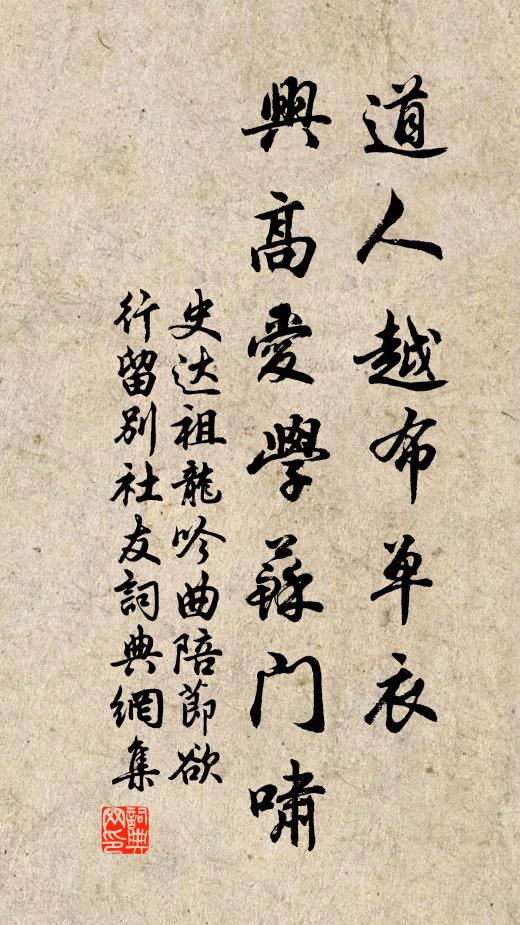 道人越布单衣
興高愛學蘇門嘯
史达祖龍吟曲陪節欲
行留别社友詞典網集
詞典
网印